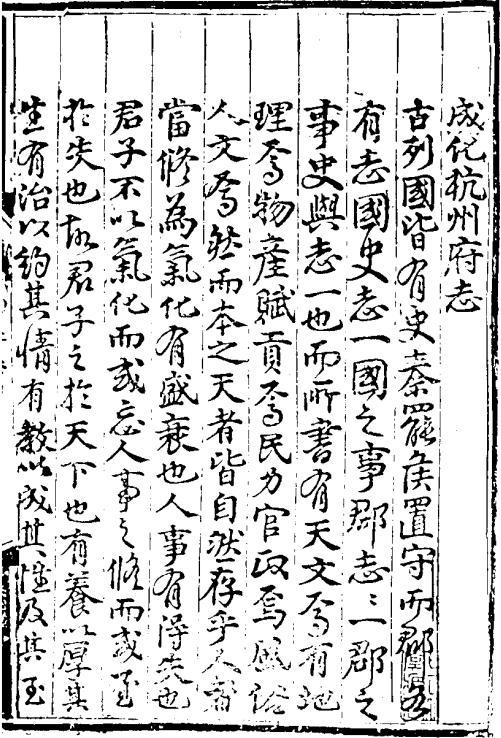 成化杭州府志
古列國皆有史秦罷侯置守而郡各
有志國史志一國之事郡志志一郡之
事史與志一也而所書有天文焉有地
理焉物產賦貢焉民力官政焉風俗
人文焉然而本之天者皆自然存乎人者
當修為氣化有盛衰也人事有得失也
君子不以氣化而或忘人事之修而或至
於失也故君子之於天下也有養以厚其
生有治以約其情有教以成其性及其至